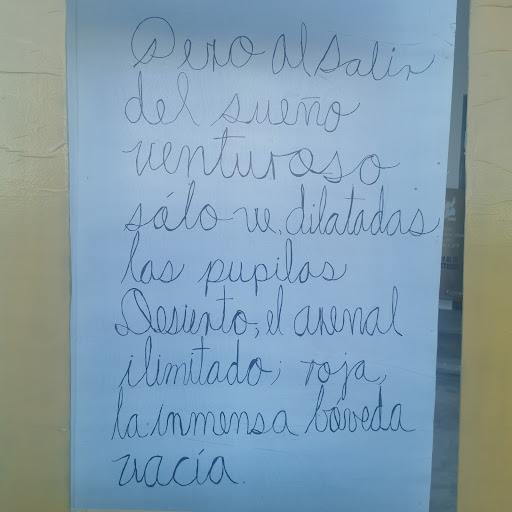 Pero al salir
del sueño
venturoso
sólo ve, dilatadas
las pupilas
Desierto, el arenal
ilimitado; roja,
la inmensa bóveda
vacía.